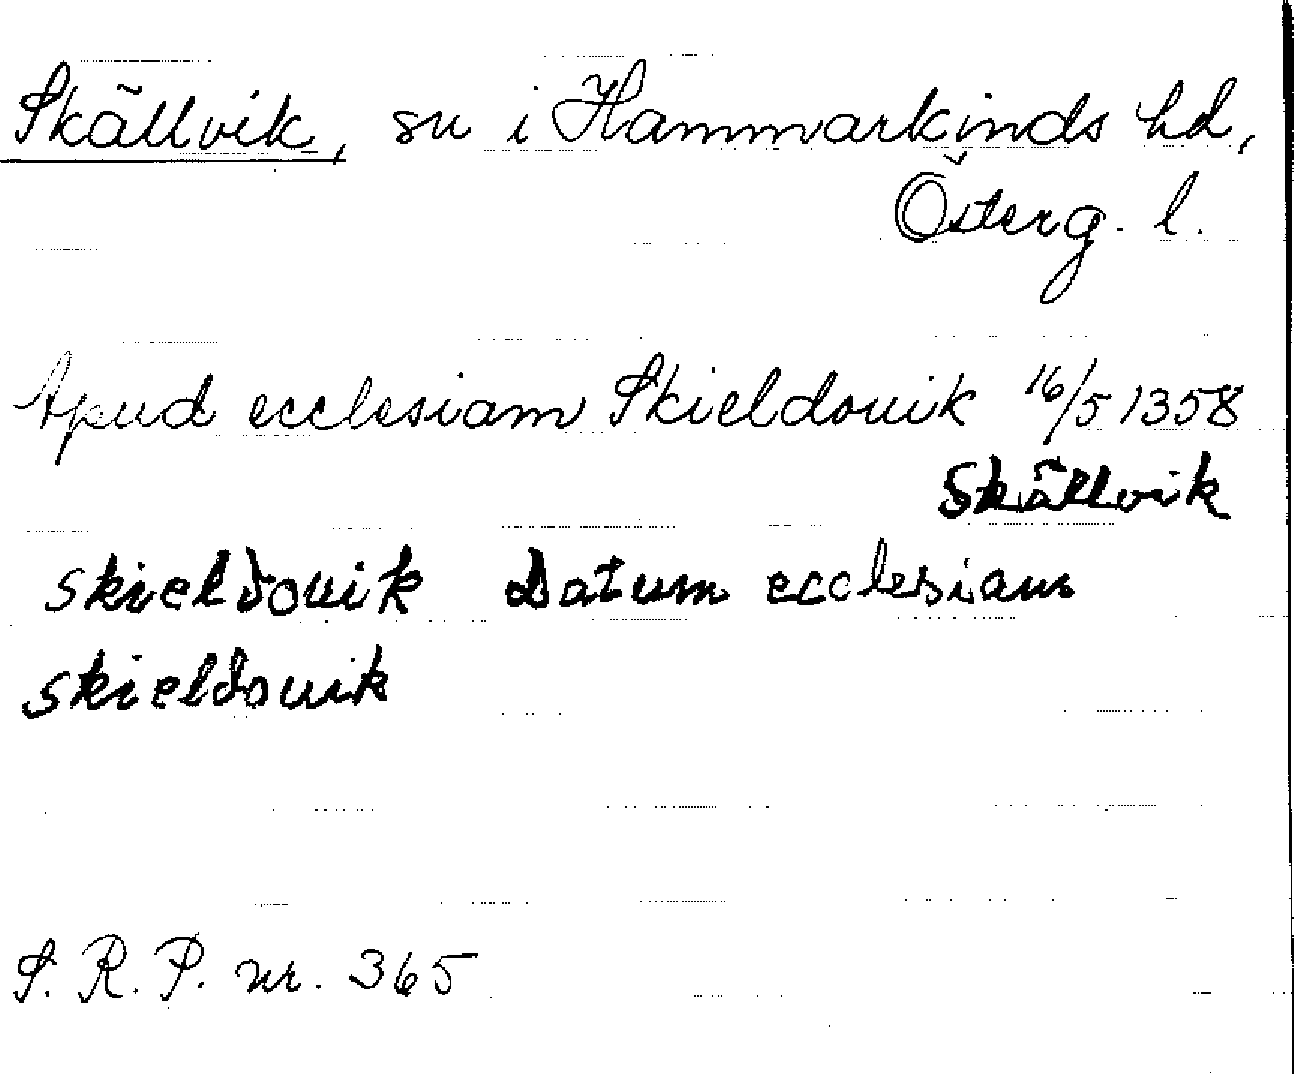 Skällvik, sn i Hammarkinds hd,
Österg. l.
Apud ecclesiam Skieldouik 16/5 1358
Skällvik
skieldouik Datum ecclesiam
skieldouik
S. R. P. nr. 365